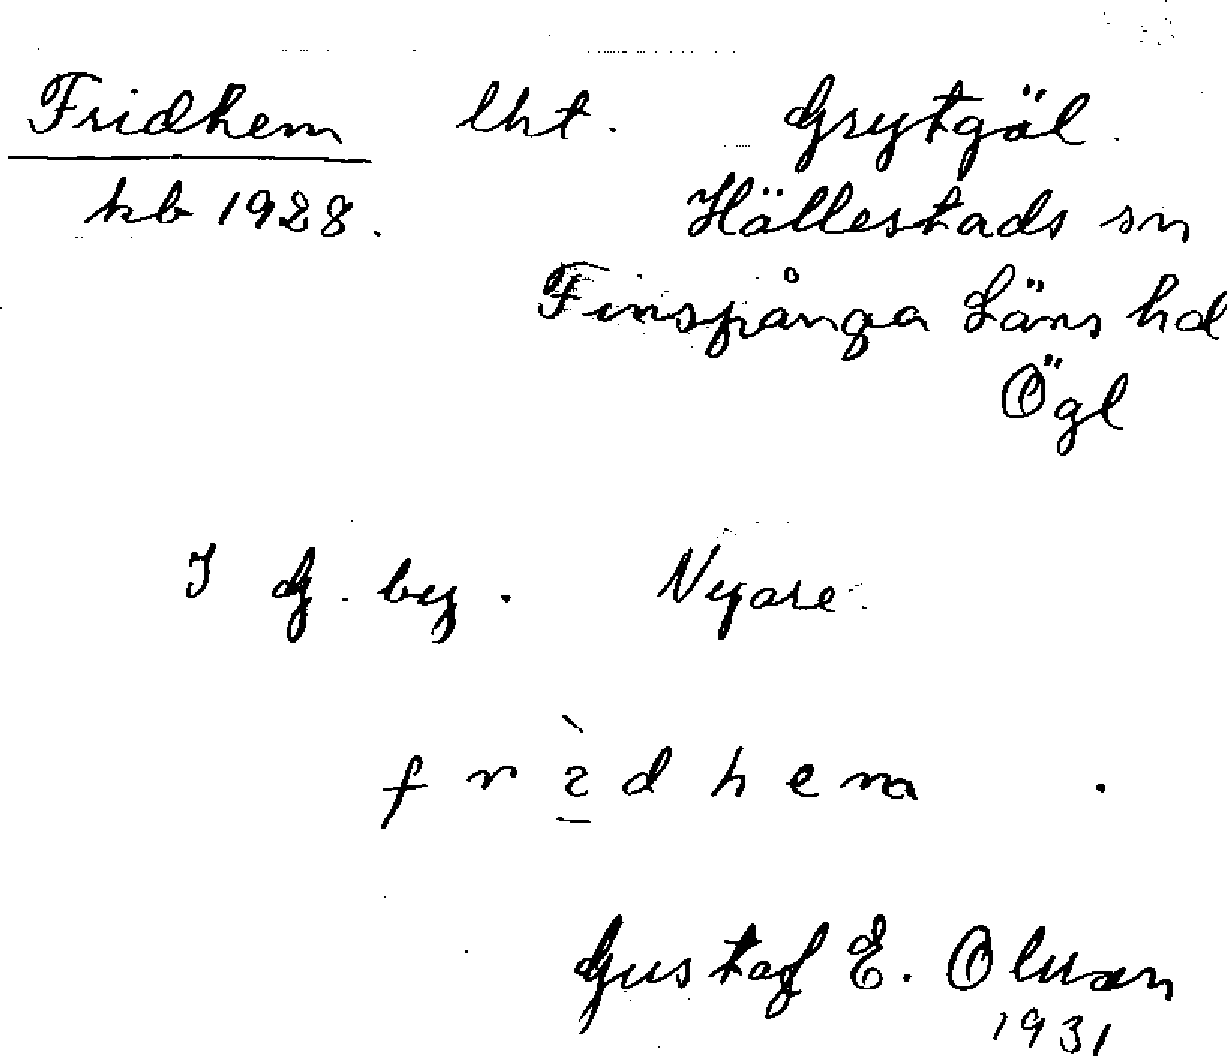 Fridhem lht. Grytgöl.
kb 1928. Hällestads sn
Finspånga Läns hd
Ögl
I G. by. Nyare.
f r ì d h e m .
Gustaf E. Olsson
1931